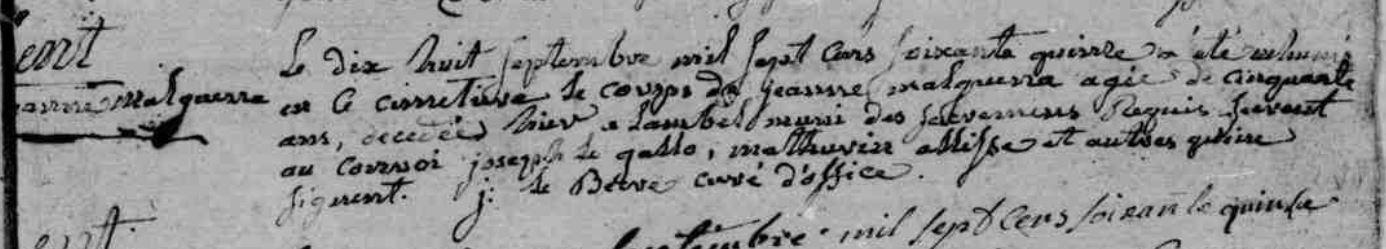 ent
jeanne malquerra
Le dix huit septembre mil sept cens soixante quinze a été inhumé
en ce cimetiere le corps de jeanne malquerra agée de cinquante
ans, decedée hier a Lambel muni des sacremens Requis furent
au convoi joseph le gallo, mathurin allisse et autres qui ne
signent. j. le Beuve curé d'office.
ent
septembre mil sept cens soixante quinse